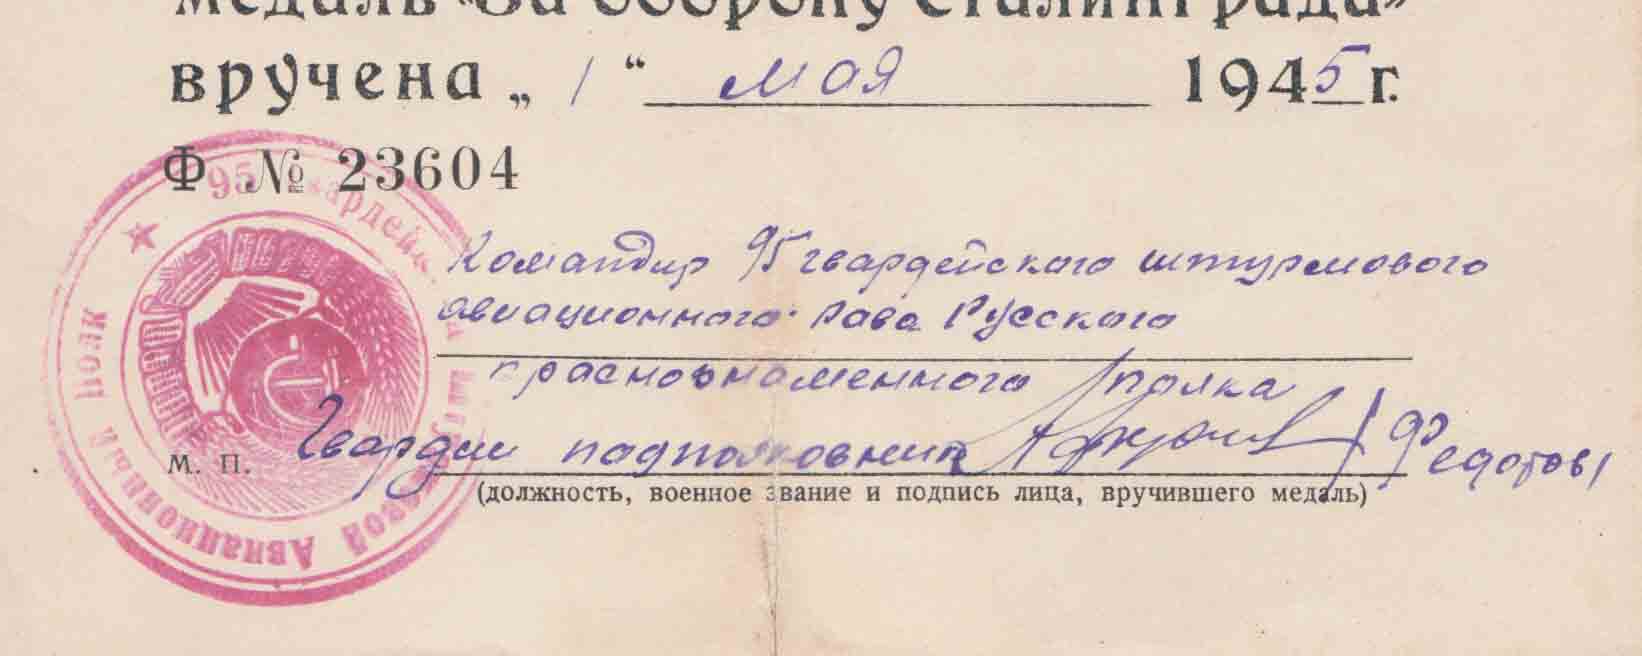 медаль «За оборону Сталинграда»
вручена „ 1 “ мая 1945 г.
Ф № 23604
Командир 95 гвардейского штурмового
авиационного Рава Русского
краснознаменного полка
Гвардии подполковник / Федотов /
М. П.
(должность, военное звание и подпись лица, вручившего медаль)
95 Гвардейский Штурмовой Авиационный Полк